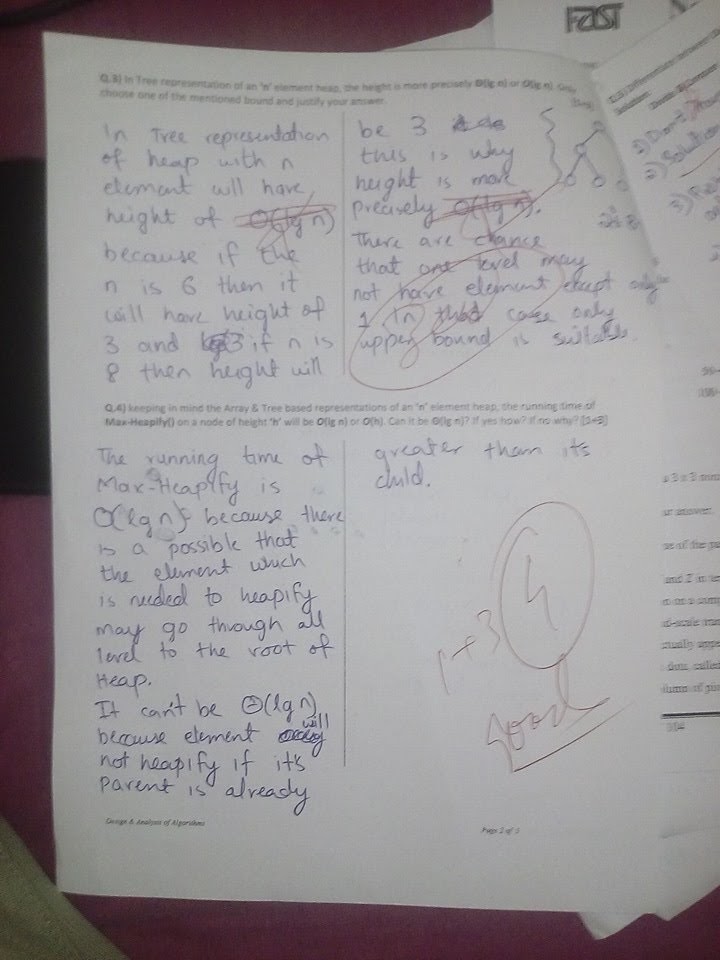 FAST
Q.3) In Tree representation of an 'n' element heap, the height is more precisely Θ(lg n) or O(lg n). Only
choose one of the mentioned bound and justify your answer.
In Tree representation
of heap with n
element will have
height of O(lg n)
because if the
n is 6 then it
will have height of
3 and if n is
8 then height will
be 3
this is why
height is more
precisely O(lg n).
There are chance
that one level may
not have element except only
1 In that case only
upper bound is suitable.
Q.4) keeping in mind the Array & Tree based representations of an 'n' element heap, the running time of
Max-Heapify() on a node of height 'h' will be O(lg n) or O(h). Can it be Θ(lg n)? If yes how? If no why? [1+3]
The running time of
Max-Heapify is
O(lg n) because there
is a possible that
the element which
is needed to heapify
may go through all
level to the root of
Heap.
It can't be Θ(lg n)
because element will
not heapify if it's
parent is already
greater than its
child.
4
1+3
Good
Design & Analysis of Algorithms
Page 2 of
1) Don't
2) Solution
3)